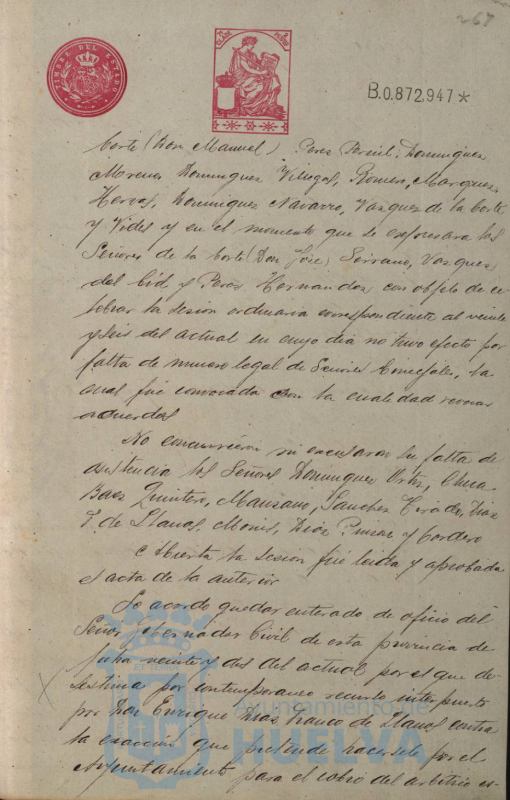 267
TIMBRE DEL ESTADO
B.0.872,947*
Corte (Don Manuel) Perez Domínguez
Moreno Dominguez Villegas, Romero, Marquez,
Hervas, Dominguez Navarro, Vazquez de la Corte
y Vides y en el momento que se expresara los
Señores de la Corte (Don José) Serrano, Vazquez
del Cid y Perez Hernandez con objeto de ce
lebrar la sesion ordinaria correspondiente al veinte
y seis del actual en cuyo dia no tuvo efecto por
falta de numero legal de Señores Concejales, la
cual fué convocada con la cualidad
acuerdos
No concurrieron ni excusaron su falta de
asistencia los Señores Dominguez Ortiz,
Baez Quintero, Manzano, Sanchez Tirado, Diaz
F. de Llanos, Monis, Diaz y Cordero
Abierta la sesion fué leida y aprobada
el acta de la anterior
Se acordó quedar enterado de oficio del
Señor Gobernador Civil de esta provincia de
fecha veinte y dos del actual por el que de-
sestima por extemporaneo recurso interpuesto
por Don Enrique Diaz Franco de Llanos contra
la exaccion que pretende hacersele por el
Ayuntamiento para el cobro del arbitrio es-
Ayuntamiento de
HUELVA